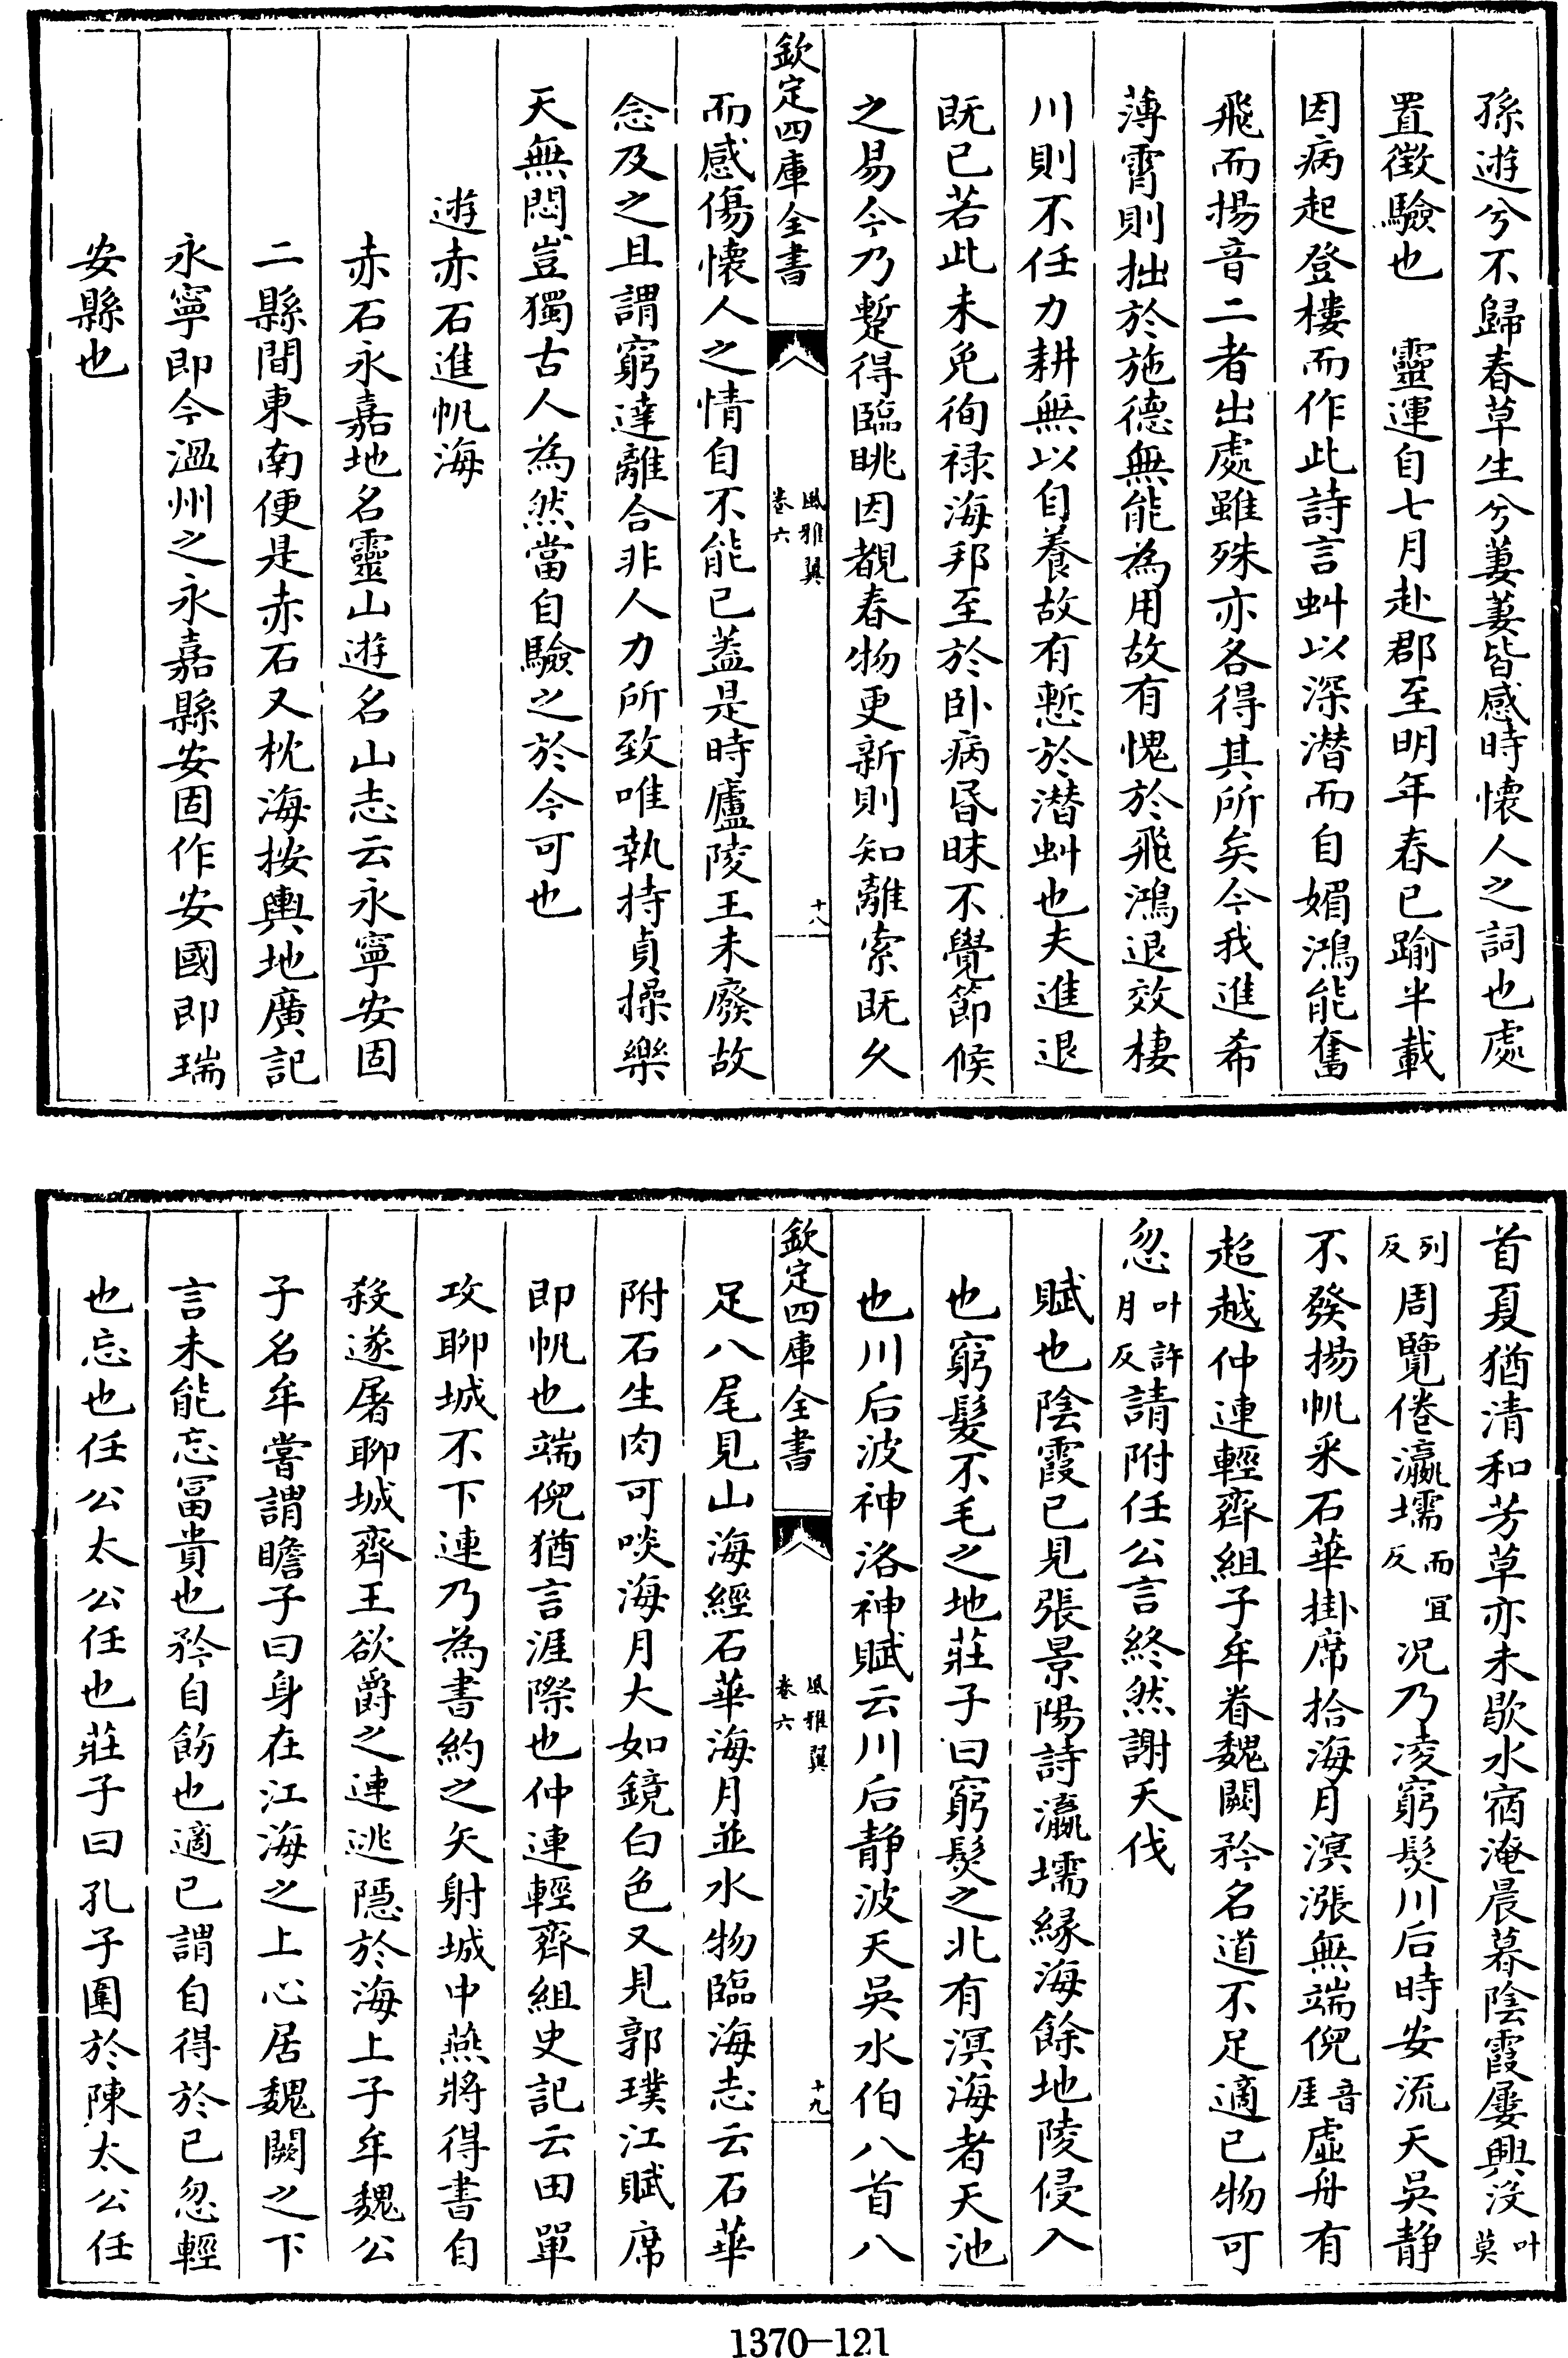 孫遊兮不歸春草生兮萋萋皆感時懷人之詞也處
置徵驗也　靈運自七月赴郡至明年春已踰半載
因病起登樓而作此詩言虬以深潛而自媚鴻能奮
飛而揚音二者出處雖殊亦各得其所矣今我進希
薄霄則拙於施德無能為用故有愧於飛鴻退效棲
川則不任力耕無以自養故有慙於潛虬也夫進退
既已若此未免徇禄海邦至於卧病昏昧不覺節候
之易今乃蹔得臨眺因覩春物更新則知離索既久
欽定四庫全書
風雅翼
卷六
十八
而感傷懷人之情自不能已蓋是時廬陵王未廢故
念及之且謂窮達離合非人力所致唯執持貞操樂
天無悶豈獨古人為然當自驗之於今可也
遊赤石進帆海
赤石永嘉地名靈山遊名山志云永寧安固
二縣間東南便是赤石又枕海按輿地廣記
永寧即今温州之永嘉縣安固作安國即瑞
安縣也
首夏猶清和芳草亦未歇水宿淹晨暮陰霞屢興没叶莫
列反周覽倦瀛壖而宣反况乃凌窮髮川后時安流天吳静
不發揚帆采石華掛席拾海月溟漲無端倪音厓虛舟有
超越仲連輕齊組子牟眷魏闕矜名道不足適已物可
忽叶許月反請附任公言終然謝夭伐
賦也陰霞已見張景陽詩瀛壖緣海餘地陵侵入
也窮髮不毛之地莊子曰窮髮之北有溟海者天池
也川后波神洛神賦云川后静波天吳水伯八首八
欽定四庫全書
風雅翼
卷六
十九
足八尾見山海經石華海月並水物臨海志云石華
附石生肉可啖海月大如鏡白色又見郭璞江賦席
即帆也端倪猶言涯際也仲連輕齊組史記云田單
攻聊城不下連乃為書約之矢射城中燕將得書自
殺遂屠聊城齊王欲爵之連逃隱於海上子牟魏公
子名牟嘗謂瞻子曰身在江海之上心居魏闕之下
言未能忘冨貴也矜自飭也適已謂自得於已忽輕
也忘也任公太公任也莊子曰孔子圍於陳太公任
1370—121